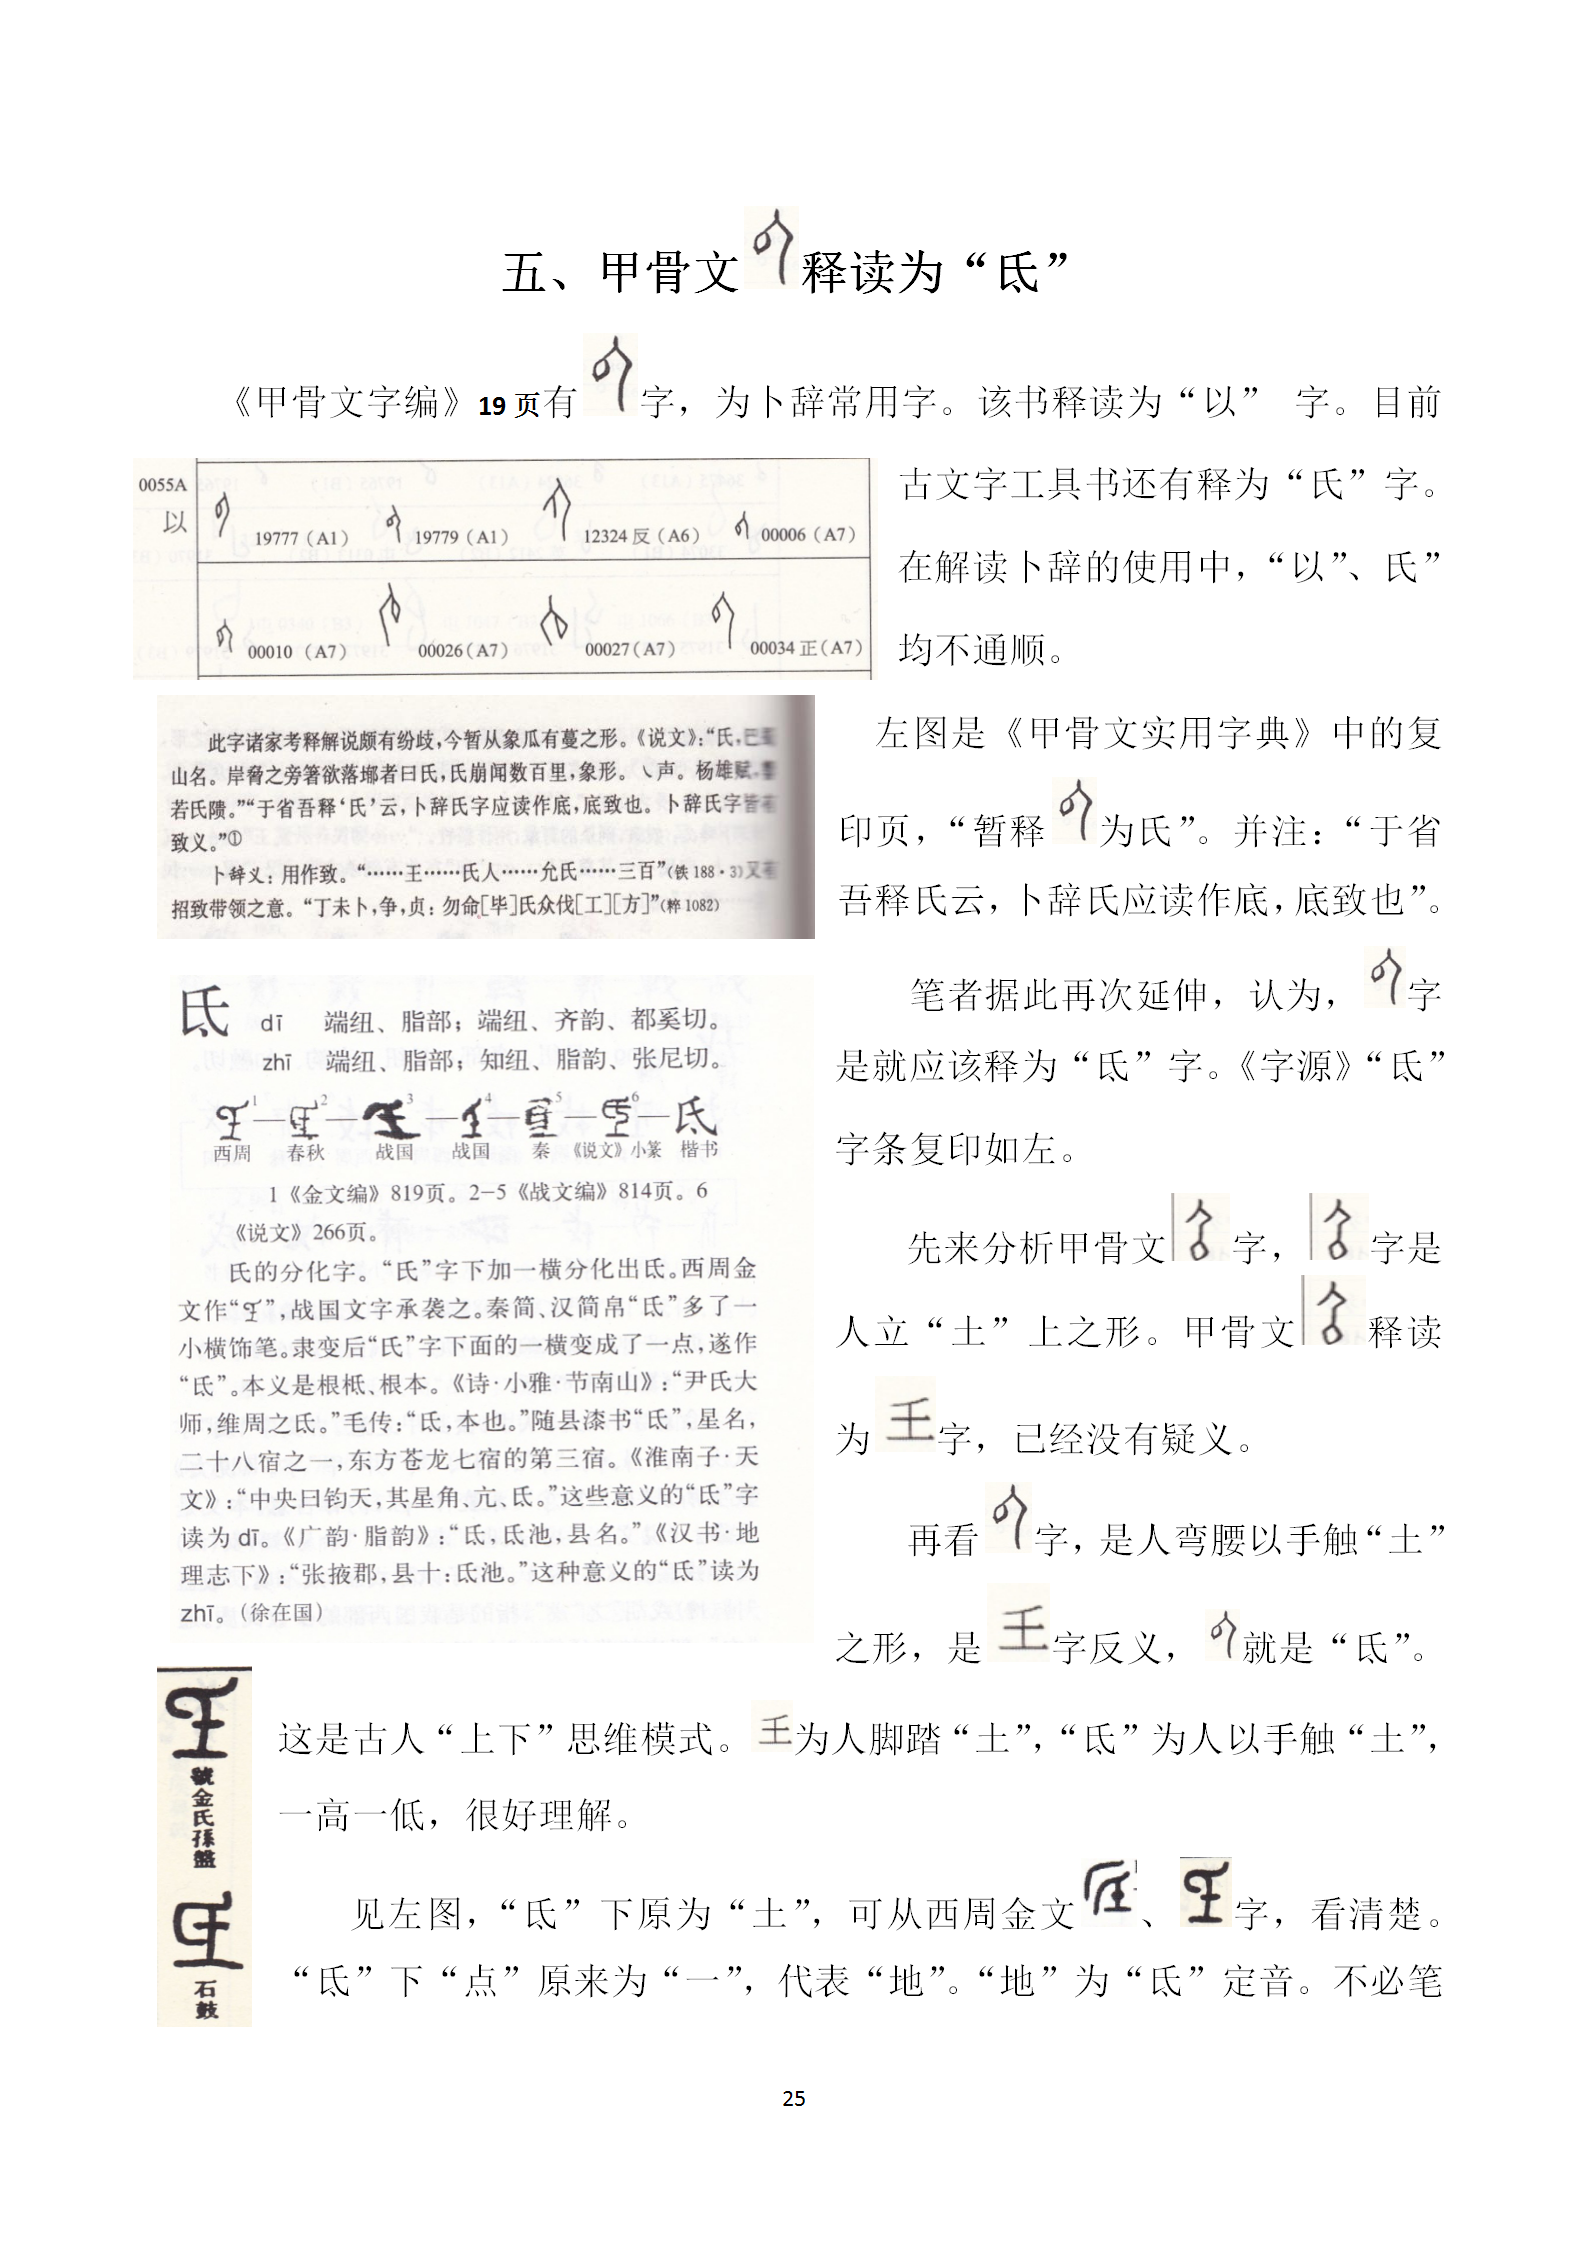 五、甲骨文释读为“氐”
《甲骨文字编》19页有字，为卜辞常用字。该书释读为“以” 字。目前
0055A
以
19777（A1）
19779（A1）
12324反（A6）
00006（A7）
00010（A7）
00026（A7）
00027（A7）
00034正（A7）
古文字工具书还有释为“氏”字。
在解读卜辞的使用中，“以”、氏”
均不通顺。
此字诸家考释解说颇有纷歧，今暂从象瓜有蔓之形。《说文》：“氏，巴蜀
山名。岸脅之旁箸欲落堕者曰氏，氏崩闻数百里，象形。乀声。杨雄赋，
若氏隤。”“于省吾释‘氏’云，卜辞氏字应读作底，底致也。卜辞氏字皆有
致义。”①
卜辞义：用作致。“……王……氏人……允氏……三百”（铁188·3）又有
招致带领之意。“丁未卜，争，贞：勿命[毕]氏众伐[工][方]”（粹1082）
左图是《甲骨文实用字典》中的复
印页，“暂释为氏”。并注：“于省
吾释氏云，卜辞氏应读作底，底致也”。
氐 dī 端纽、脂部；端纽、齐韵、都奚切。
zhī 端纽、脂部；知纽、脂韵、张尼切。
1 2 3 4 5 6 氐
西周 春秋 战国 战国 秦 《说文》小篆 楷书
1《金文编》819页。2-5《战文编》814页。6
《说文》266页。
氏的分化字。“氏”字下加一横分化出氐。西周金
文作“”，战国文字承袭之。秦简、汉简帛“氐”多了一
小横饰笔。隶变后“氏”字下面的一横变成了一点，遂作
“氐”。本义是根柢、根本。《诗·小雅·节南山》：“尹氏大
师，维周之氐。”毛传：“氐，本也。”随县漆书“氐”，星名，
二十八宿之一，东方苍龙七宿的第三宿。《淮南子·天
文》：“中央曰钧天，其星角、亢、氐。”这些意义的“氐”字
读为dī。《广韵·脂韵》：“氐，氐池，县名。”《汉书·地
理志下》：“张掖郡，县十：氐池。”这种意义的“氐”读为
zhī。（徐在国）
笔者据此再次延伸，认为，字
是就应该释为“氐”字。《字源》“氐”
字条复印如左。
先来分析甲骨文字，字是
人立“土”上之形。甲骨文释读
为𡈼字，已经没有疑义。
再看字，是人弯腰以手触“土”
之形，是𡈼字反义，就是“氐”。
这是古人“上下”思维模式。𡈼为人脚踏“土”，“氐”为人以手触“土”，
一高一低，很好理解。
虢金氏孫盤
石鼓
见左图，“氐”下原为“土”，可从西周金文、字，看清楚。
“氐”下“点”原来为“一”，代表“地”。“地”为“氐”定音。不必笔
25